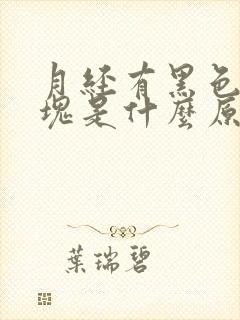 月經有黑色
塊是什麼原
葉瑞碧